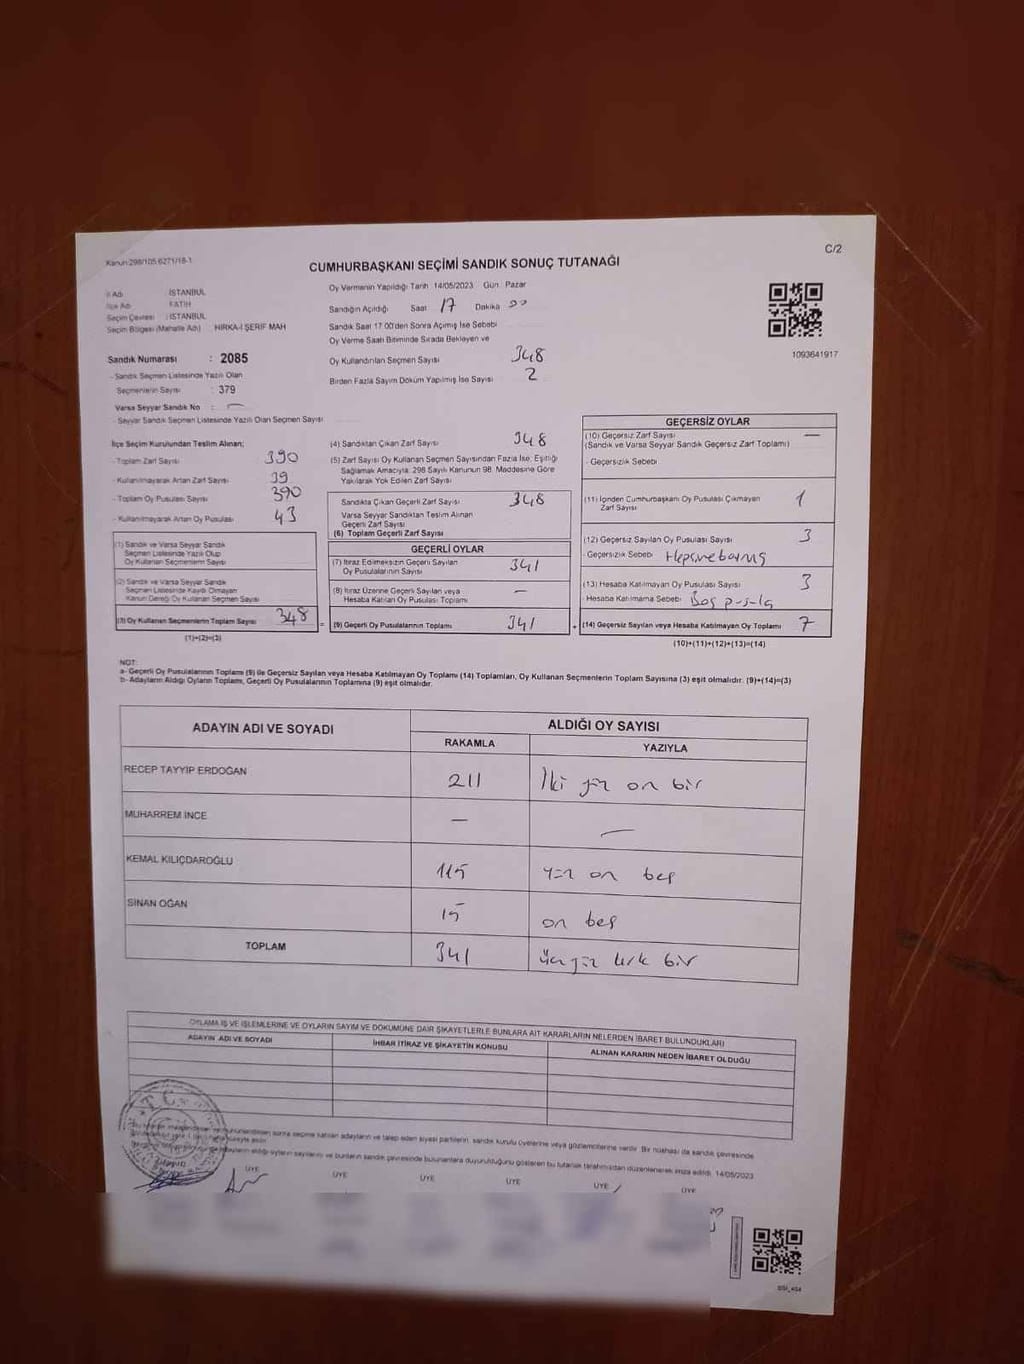 Kanun:298/105,6271/18-1
C/2
CUMHURBAŞKANI SEÇİMİ SANDIK SONUÇ TUTANAĞI
İl Adı : İSTANBUL
İlçe Adı : FATİH
Seçim Çevresi : İSTANBUL
Seçim Bölgesi (Mahalle Adı) : HIRKA-İ ŞERİF MAH
Sandık Numarası : 2085
- Sandık Seçmen Listesinde Yazılı Olan
Seçmenlerin Sayısı : 379
Varsa Seyyar Sandık No : —
- Seyyar Sandık Seçmen Listesinde Yazılı Olan Seçmen Sayısı
Oy Vermenin Yapıldığı Tarih 14/05/2023 Gün Pazar
Sandığın Açıldığı Saat 17 Dakika 00
Sandık Saat 17.00'den Sonra Açılmış İse Sebebi
Oy Verme Saati Bitiminde Sırada Bekleyen ve
Oy Kullandırılan Seçmen Sayısı 348
Birden Fazla Sayım Döküm Yapılmış İse Sayısı 2
1093641917
İlçe Seçim Kurulundan Teslim Alınan;
- Toplam Zarf Sayısı 390
- Kullanılmayarak Artan Zarf Sayısı 39
- Toplam Oy Pusulası Sayısı 390
- Kullanılmayarak Artan Oy Pusulası 43
(1) Sandık ve Varsa Seyyar Sandık
Seçmen Listesinde Yazılı Olup
Oy Kullanan Seçmenlerin Sayısı
(2) Sandık ve Varsa Seyyar Sandık
Seçmen Listesinde Kaydı Olmayan
Kanun Gereği Oy Kullanan Seçmen Sayısı
(3) Oy Kullanan Seçmenlerin Toplam Sayısı 348
(1)+(2)=(3)
(4) Sandıktan Çıkan Zarf Sayısı 348
(5) Zarf Sayısı Oy Kullanan Seçmen Sayısından Fazla İse; Eşitliği
Sağlamak Amacıyla; 298 Sayılı Kanunun 98. Maddesine Göre
Yakılarak Yok Edilen Zarf Sayısı
Sandıkta Çıkan Geçerli Zarf Sayısı 348
Varsa Seyyar Sandıktan Teslim Alınan
Geçerli Zarf Sayısı
(6) Toplam Geçerli Zarf Sayısı
GEÇERLİ OYLAR
(7) İtiraz Edilmeksizin Geçerli Sayılan
Oy Pusulalarının Sayısı 341
(8) İtiraz Üzerine Geçerli Sayılan veya
Hesaba Katılan Oy Pusulası Toplamı —
= (9) Geçerli Oy Pusulalarının Toplamı 341
GEÇERSİZ OYLAR
(10) Geçersiz Zarf Sayısı —
(Sandık ve Varsa Seyyar Sandık Geçersiz Zarf Toplamı)
- Geçersizlik Sebebi
(11) İçinden Cumhurbaşkanı Oy Pusulası Çıkmayan
Zarf Sayısı 1
(12) Geçersiz Sayılan Oy Pusulası Sayısı 3
- Geçersizlik Sebebi Hepsine basmış
(13) Hesaba Katılmayan Oy Pusulası Sayısı 3
- Hesaba Katılmama Sebebi Boş pusula
+ (14) Geçersiz Sayılan veya Hesaba Katılmayan Oy Toplamı 7
(10)+(11)+(12)+(13)=(14)
NOT:
a- Geçerli Oy Pusulalarının Toplamı (9) ile Geçersiz Sayılan veya Hesaba Katılmayan Oy Toplamı (14) Toplamları, Oy Kullanan Seçmenlerin Toplam Sayısına (3) eşit olmalıdır. (9)+(14)=(3)
b- Adayların Aldığı Oyların Toplamı, Geçerli Oy Pusulalarının Toplamına (9) eşit olmalıdır.
ADAYIN ADI VE SOYADI ALDIĞI OY SAYISI
RAKAMLA YAZIYLA
RECEP TAYYİP ERDOĞAN 211 İki yüz on bir
MUHARREM İNCE — —
KEMAL KILIÇDAROĞLU 115 yüz on beş
SİNAN OĞAN 15 on beş
TOPLAM 341 üç yüz kırk bir
OYLAMA İŞ VE İŞLEMLERİNE VE OYLARIN SAYIM VE DÖKÜMÜNE DAİR ŞİKAYETLERLE BUNLARA AİT KARARLARIN NELERDEN İBARET BULUNDUKLARI
ADAYIN ADI VE SOYADI İHBAR İTİRAZ VE ŞİKAYETİN KONUSU ALINAN KARARIN NEDEN İBARET OLDUĞU
sonra seçime katılan adayların ve talep eden siyasi partilerin, sandık kurulu üyelerine veya gözlemcilerine verilir. Bir nüshası da sandık çevresinde
aldığı oyların sayılarını ve bunların sandık çevresinde bulunanlara duyurulduğunu gösteren bu tutanak tarafımızdan düzenlenerek imza edildi. 14/05/2023
T.C.
ÜYE ÜYE ÜYE ÜYE ÜYE ÜYE